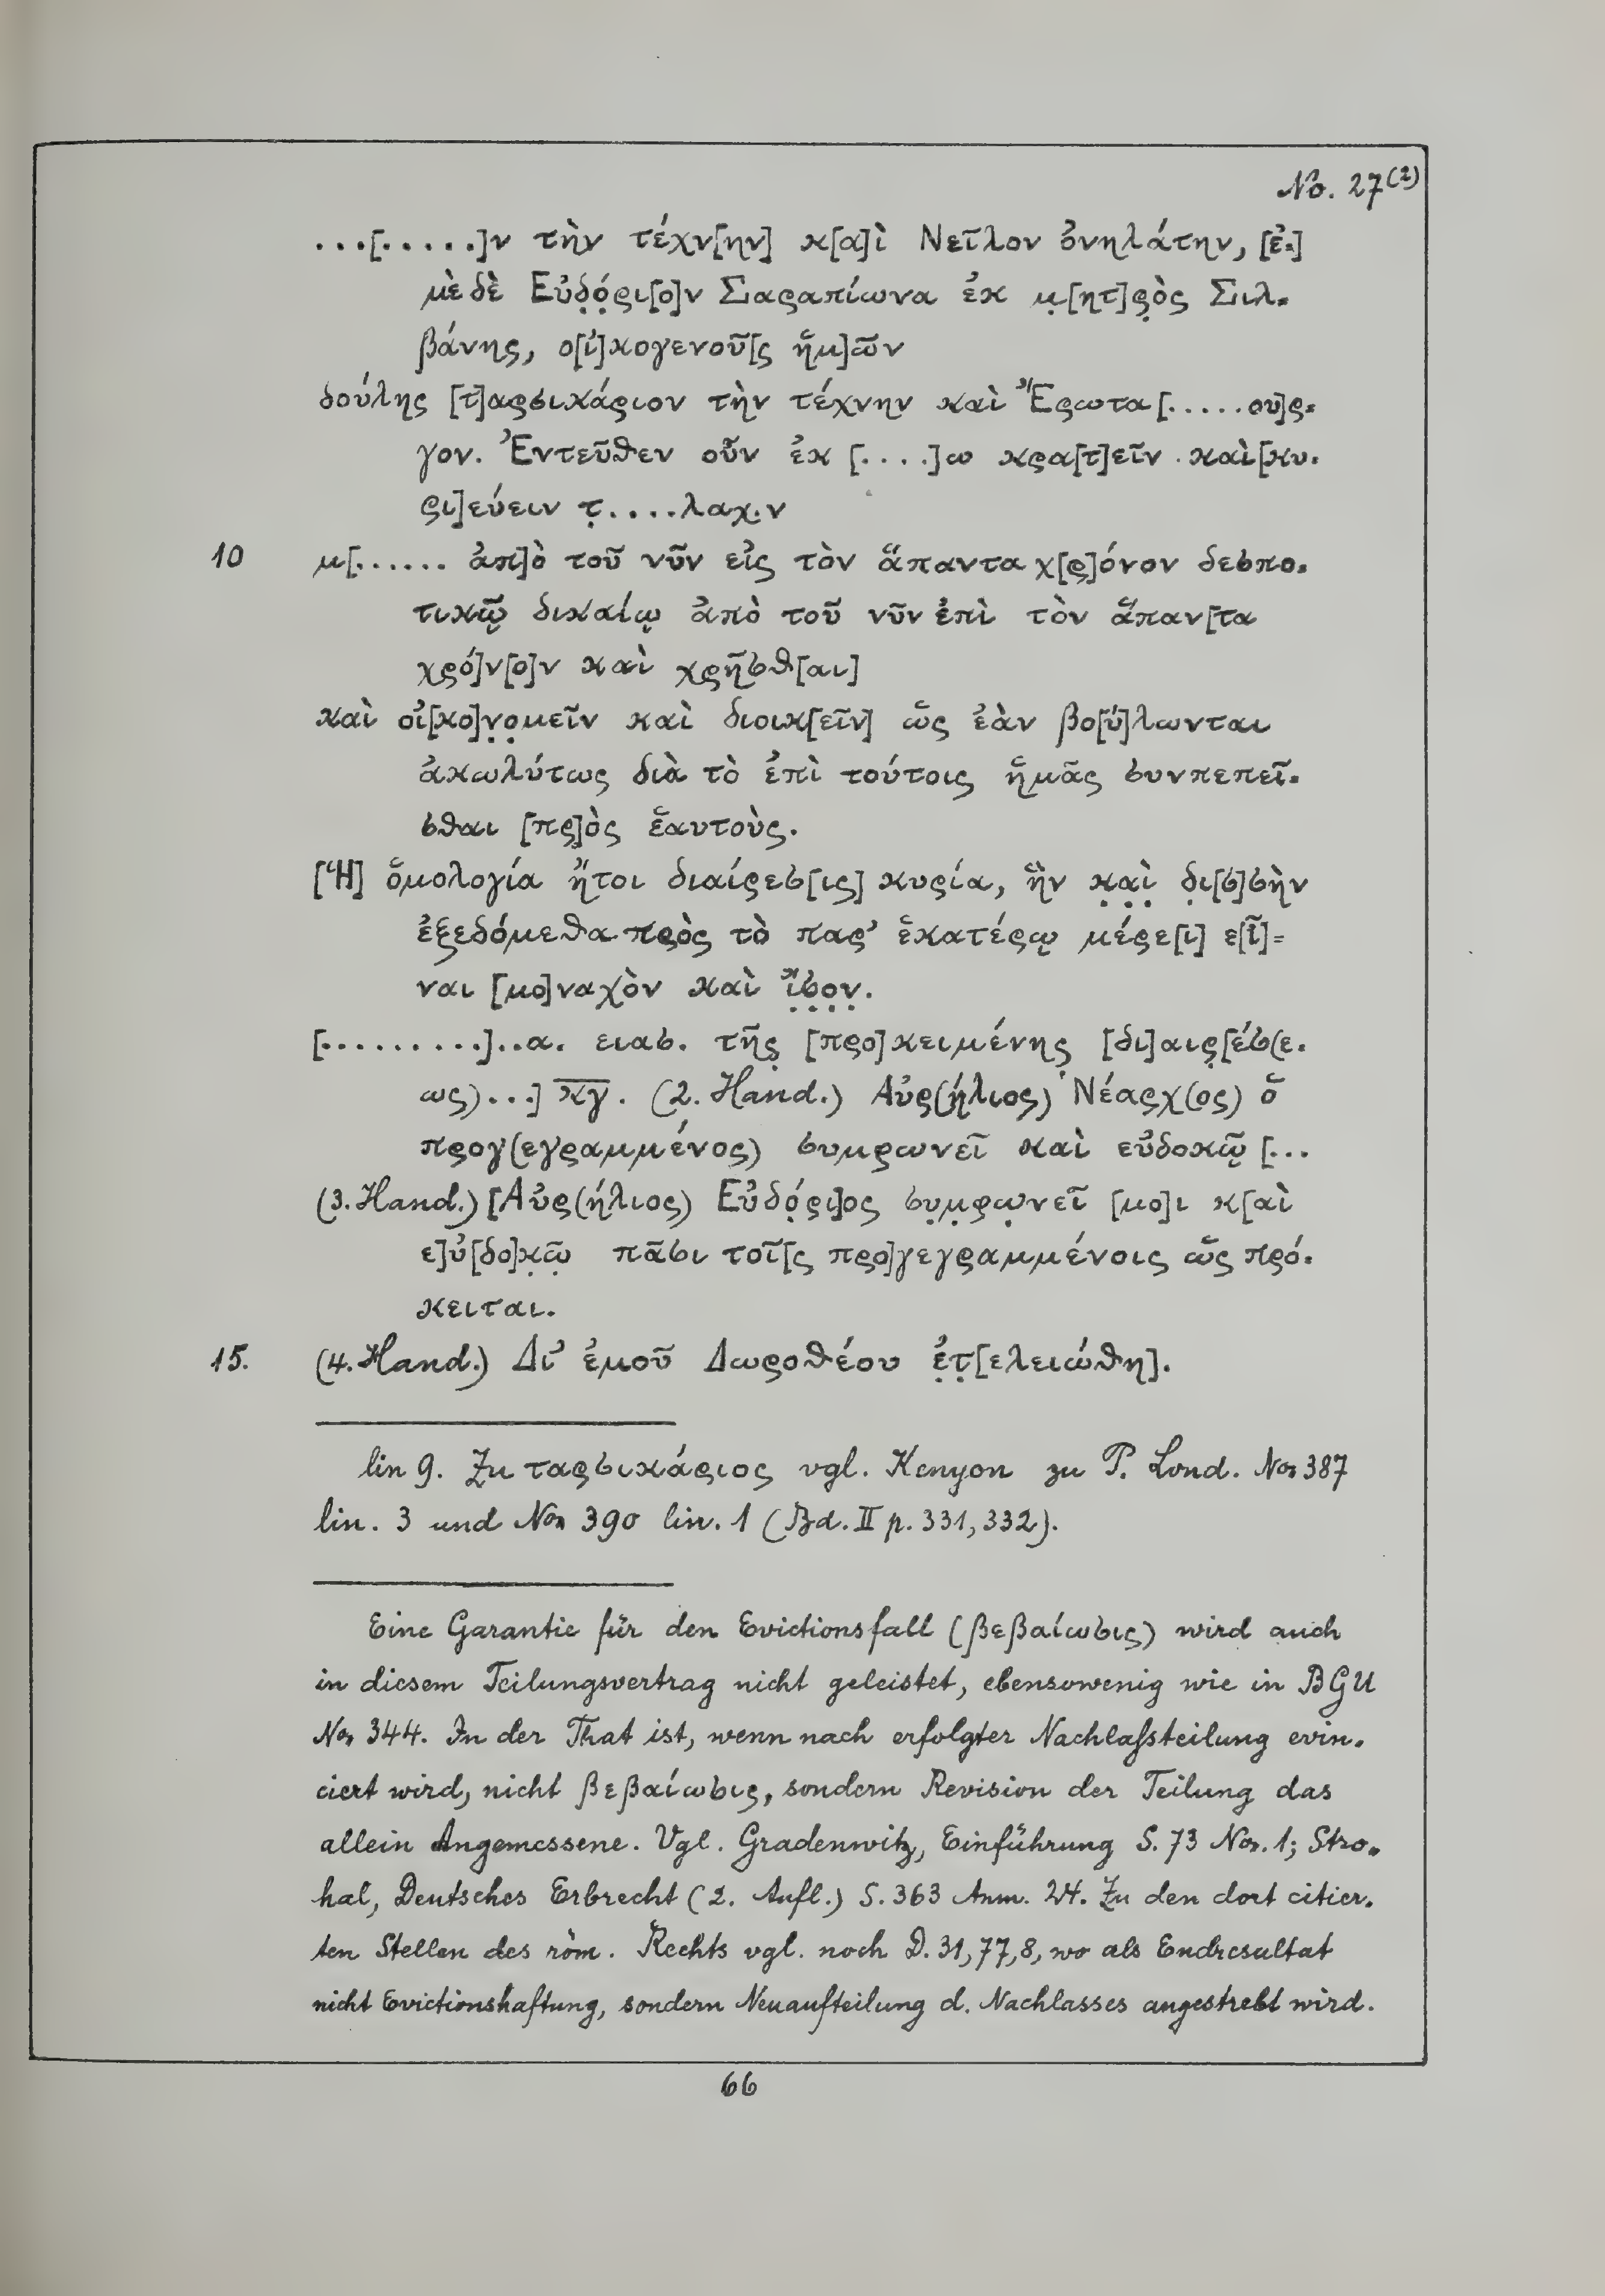 No. 27(2)
...[.....]ν τὴν τέχν[ην] κ[α]ὶ Νεῖλον ὀνηλάτην, [ἐ-]
μὲ δὲ Εὐδ̣ό̣ρι[ο]ν Σαραπίωνα ἐκ μ̣[ητ]ρ̣ὸς Σιλ-
βάνης, ο[ἰ]κογενοῦ[ς ἡμ]ῶν
δούλης [τ]αρσικάριον τὴν τέχνην καὶ Ἔρωτα [.....ου]ρ-
γον. Ἐντεῦθεν οὖν ἐκ [....]ω κρα[τ]εῖν καὶ [κυ-
ρι]εύειν τ̣....λαχ.ν
10 μ[...... ἀπ]ὸ τοῦ νῦν εἰς τὸν ἅπαντα χ[ρ]όνον δεσπο-
τικῷ δικαίῳ ἀπὸ τοῦ νῦν ἐπὶ τὸν ἅπαν[τα
χρό]ν[ο]ν καὶ χρῆσθ[αι]
καὶ οἰ[κο]ν̣ο̣μεῖν καὶ διοικ[εῖν] ὡς ἐὰν βο[ύ]λωνται
ἀκωλύτως διὰ τὸ ἐπὶ τούτοις ἡμᾶς συνπεπεῖ-
σθαι [πρ]ὸς ἑαυτοὺς.
[Ἡ] ὁμολογία ἤτοι διαίρεσ[ις] κυρία, ἣν κ̣α̣ὶ̣ δ̣ι[σ]σὴν
ἐξεδόμεθα πρὸς τὸ παρ’ ἑκατέρῳ μέρε[ι] ε[ἶ]=
ναι [μο]ναχὸν καὶ ἴ̣σ̣ο̣ν̣.
[.........]..α. ειασ. τῆς̣ [προ]κειμένης [δι]αιρ̣[έσ(ε-
ως)...] κγ. (2. Hand.) Αὐρ(ήλιος) Νέαρχ(ος) ὁ
προγ(εγραμμένος) συμφωνεῖ καὶ εὐδοκῶ̣ [...
(3. Hand.) [Αὐρ(ήλιος) Εὐδό̣ρι]ος συ̣μ̣φω̣νεῖ [μο]ι κ[αὶ
ε]ὐ[δο]κ̣ῶ̣ πᾶσι τοῖ[ς προ]γεγραμμένοις ὡς πρό-
κειται.
15. (4. Hand.) Δι’ ἐμοῦ Δωροθέου ἐ̣τ̣[ελειώθη].
lin 9. Zu ταρσικάριος vgl. Kenyon zu P. Lond. No 387
lin. 3 und No 390 lin. 1 (Bd. II p. 331, 332).
Eine Garantie für den Evictionsfall (βεβαίωσις) wird auch
in diesem Teilungsvertrag nicht geleistet, ebensowenig wie in BGU
No 344. In der That ist, wenn nach erfolgter Nachlaßteilung evin-
ciert wird, nicht βεβαίωσις, sondern Revision der Teilung das
allein Angemessene. Vgl. Gradenwitz, Einführung S. 73 No. 1; Stro-
hal, Deutsches Erbrecht (2. Aufl.) S. 363 Anm. 24. Zu den dort citier-
ten Stellen des röm. Rechts vgl. noch D. 31, 77, 8, wo als Endresultat
nicht Evictionshaftung, sondern Neuaufteilung d. Nachlasses angestrebt wird.
66